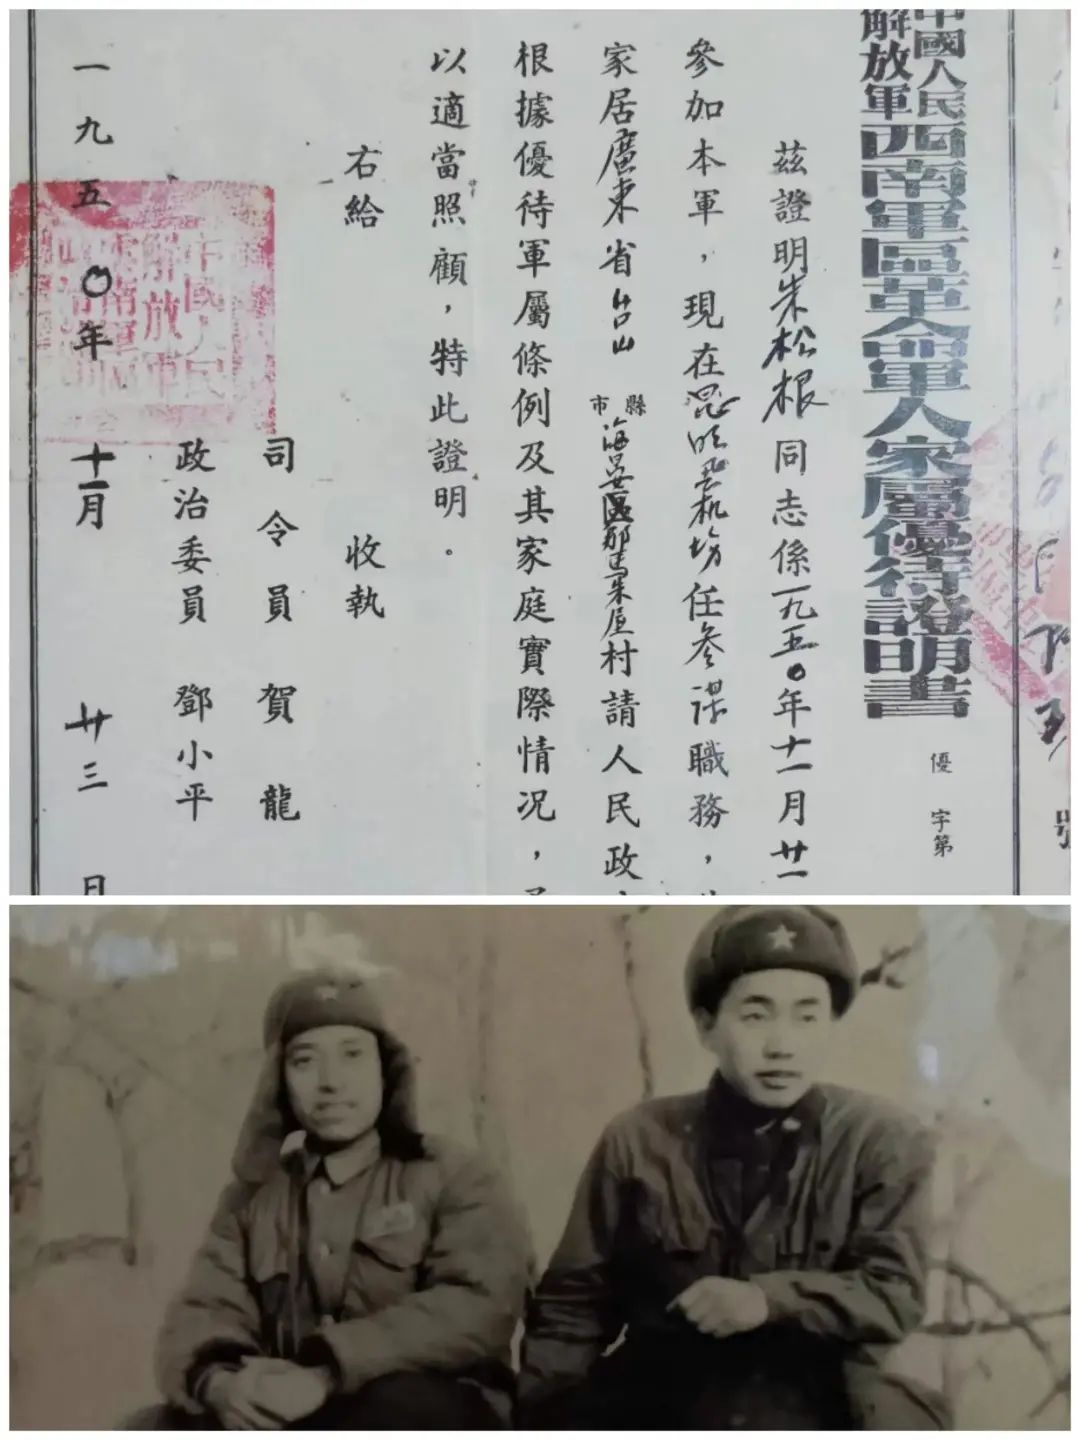 中國人民
解放軍
西南軍區革命軍人家屬優待證明書
優 字第
號
茲證明朱松根同志係一九五〇年十一月廿一
參加本軍，現在昆明飛机場任參謀職務，
家居廣東省台山縣市海晏區那馬朱屋村請人民政
根據優待軍屬條例及其家庭實際情况，
以適當照顧，特此證明。
右給
收執
司令員 賀龍
政治委員 鄧小平
一九五〇年十一月廿三日